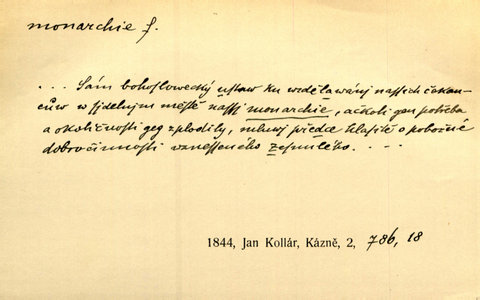 monarchie f.
... Sám bohoslowecký ustaw ku wzděláwánj nassich čekan-
cůw w sjdelnjm městě nassj monarchie, ačkoli gen potřeba
a okoličnosti geg zplodily, mluwj předce hlasitě o pobožné
dobročinnosti wznesseného Zesnulého. ...
1844, Jan Kollár, Kázně, 2, 786, 18